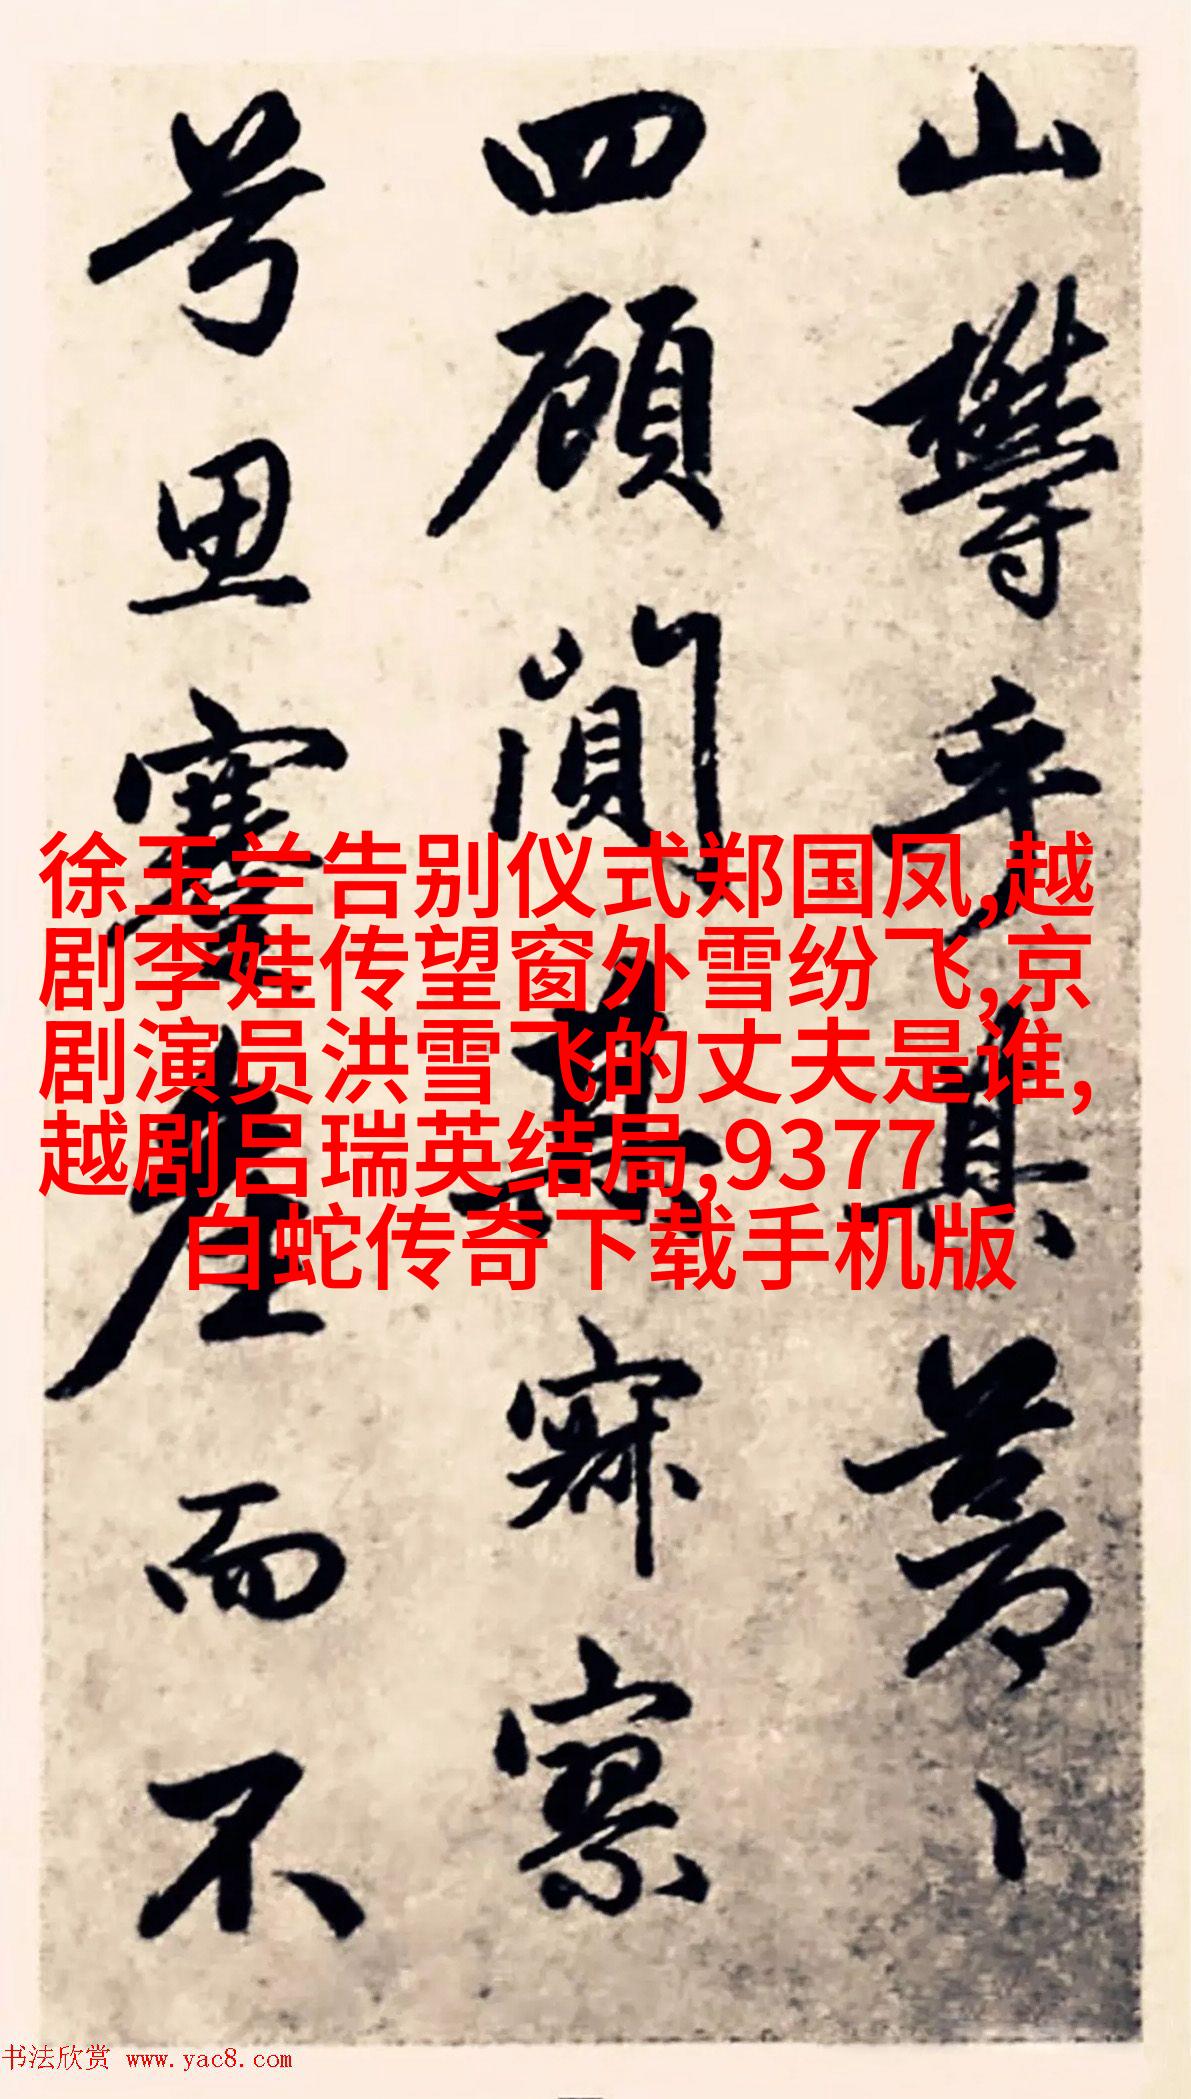 山欝乎其蒼〻
四顧闃其寂寥
兮思蹇產而不
徐玉兰告别仪式郑国凤,越
剧李娃传望窗外雪纷飞,京
剧演员洪雪飞的丈夫是谁,
越剧吕瑞英结局,9377
白蛇传奇下载手机版
书法欣赏 www.yac8.com